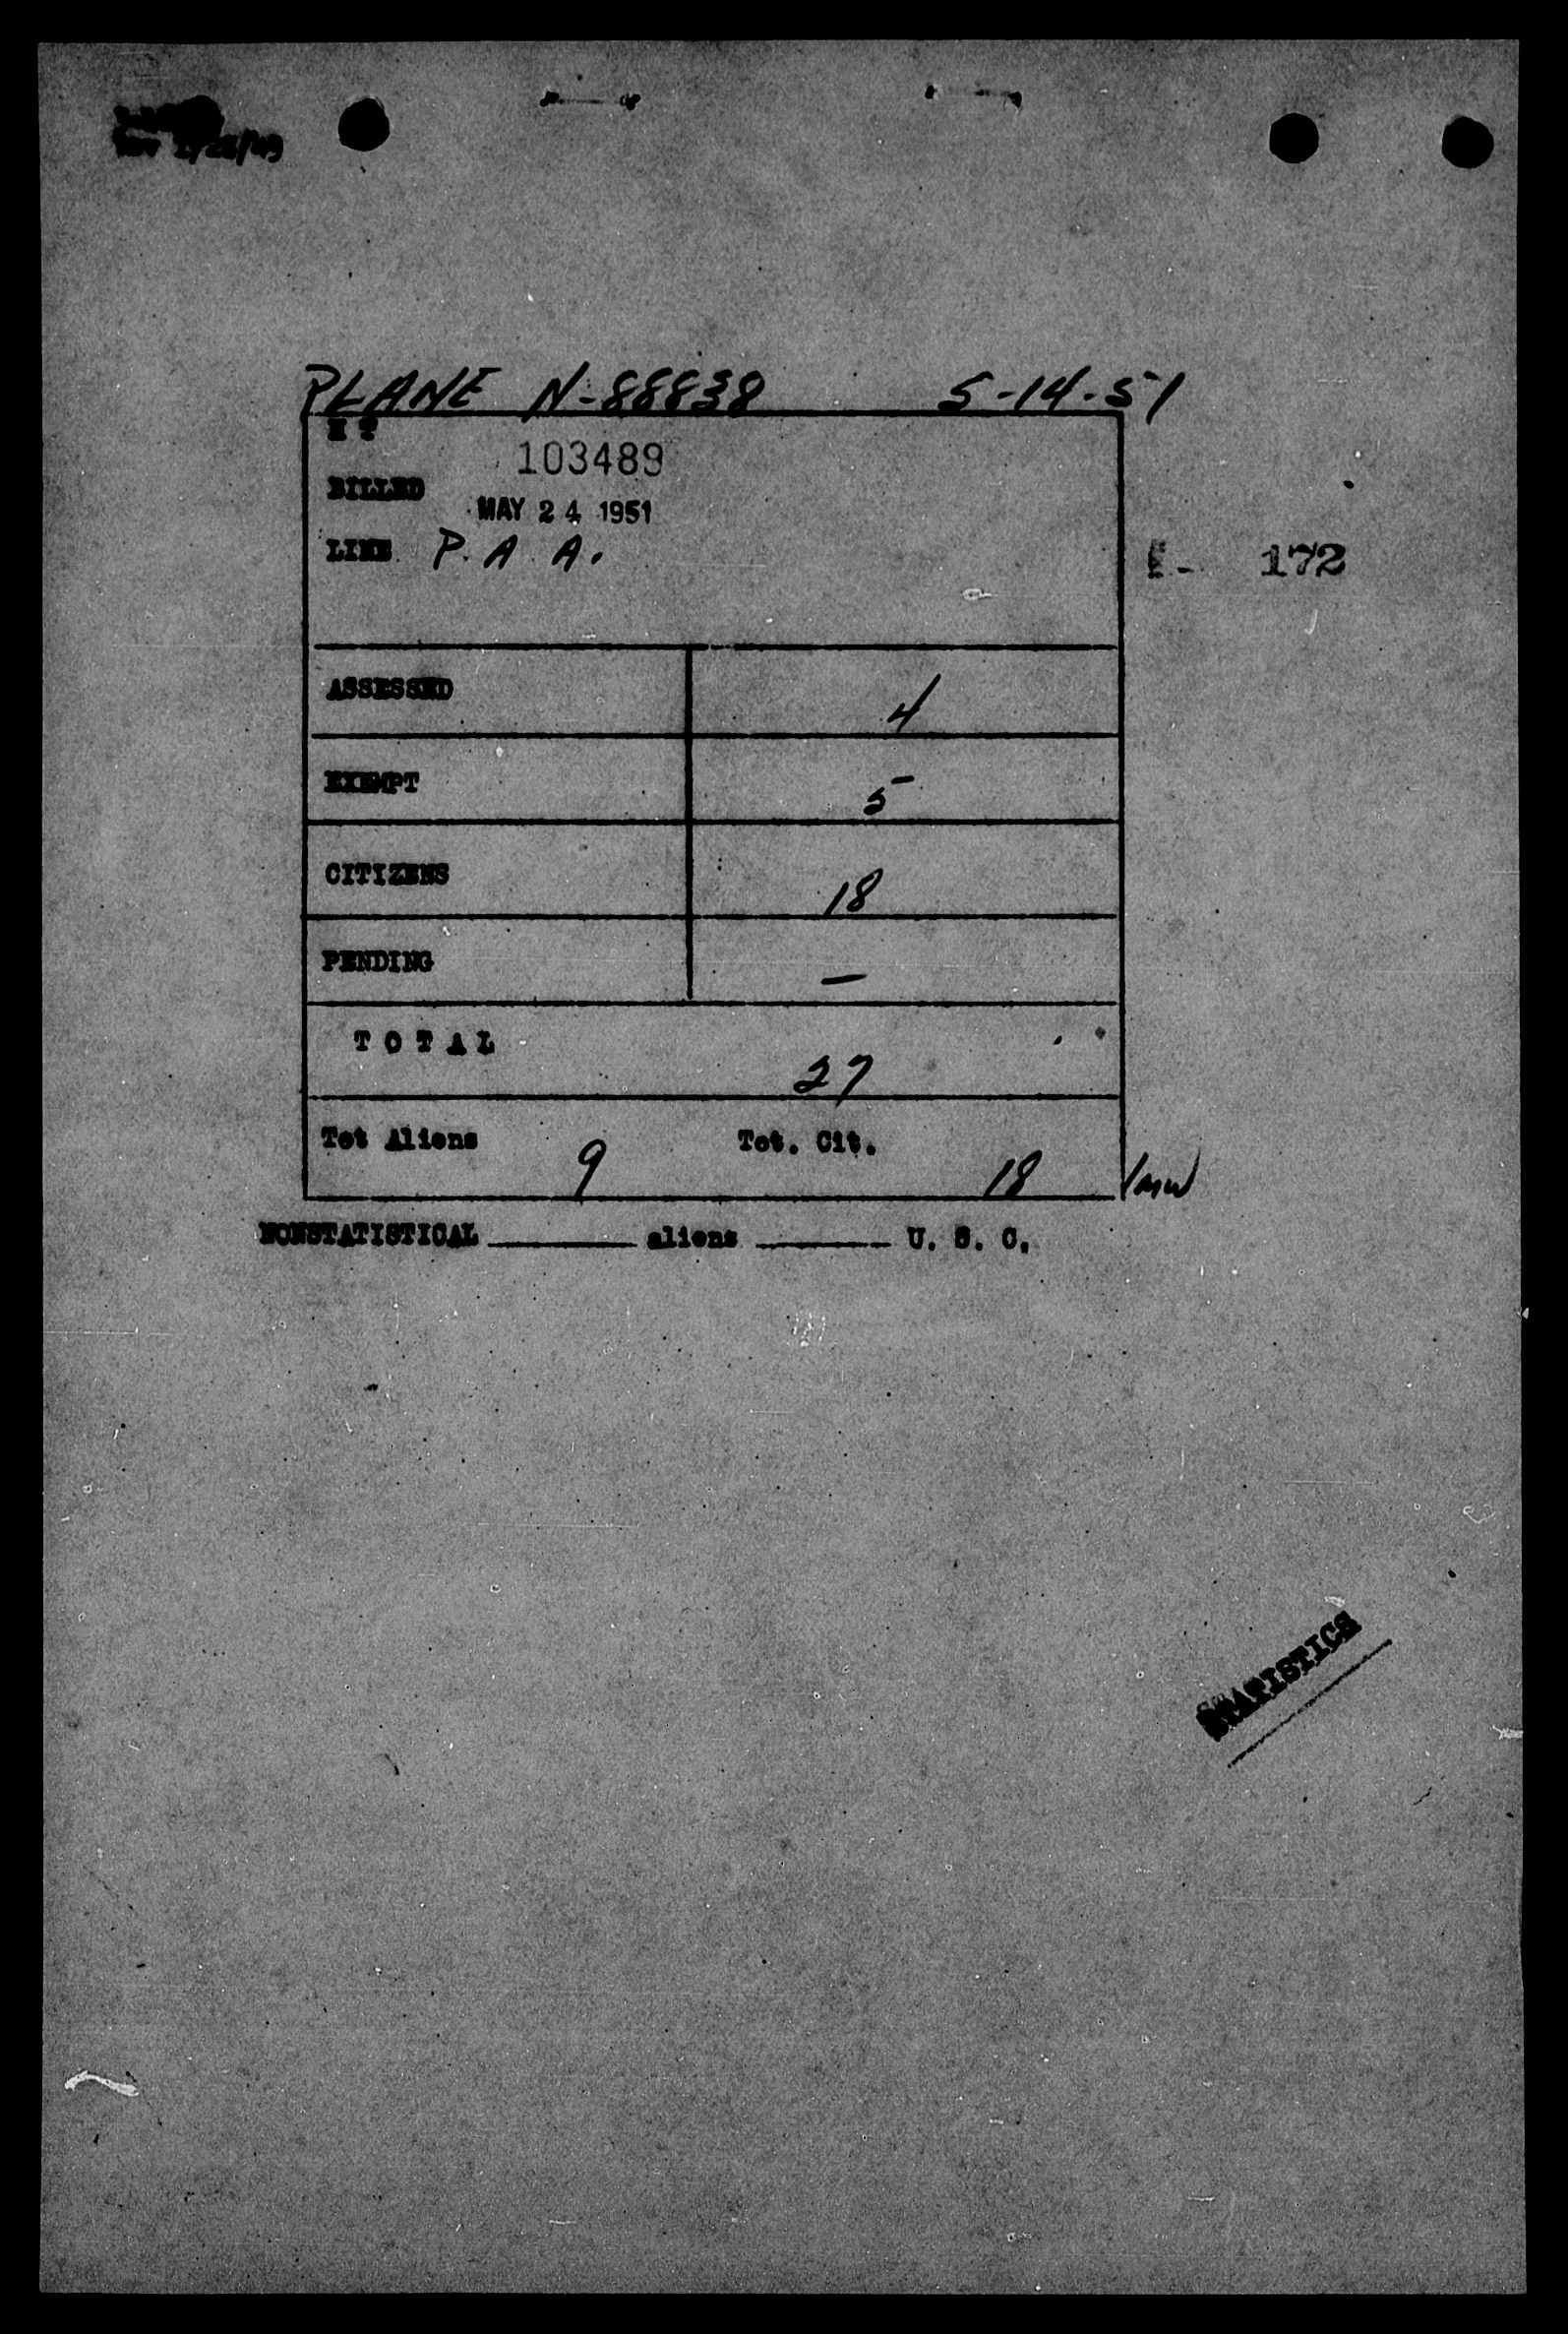 PLANE N-88838 5-14-51
103489
BILLED
MAY 24 1951
LINE P. A. A.
172
ASSESSED 4
EXEMPT 5
CITIZENS 18
PENDING —
TOTAL 27
Tot Aliens 9 Tot. Cit. 18
NONSTATISTICAL ______ aliens ______ U. S. C.
STATISTICS